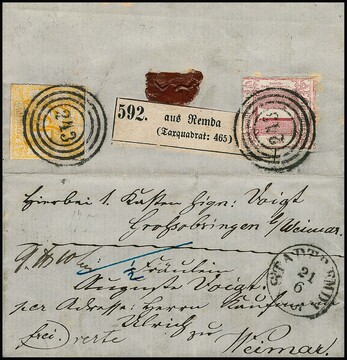 243
592. aus Remda
(Taxquadrat: 465)
Hierbei 1. Kasten sign: Voigt
Großobringen b/Weimar.
Fräulein
Auguste Voigt.
per Adresse: Herrn Kaufm.
Ulrich
frei. zu Weimar.
STADTREMDA
21
6